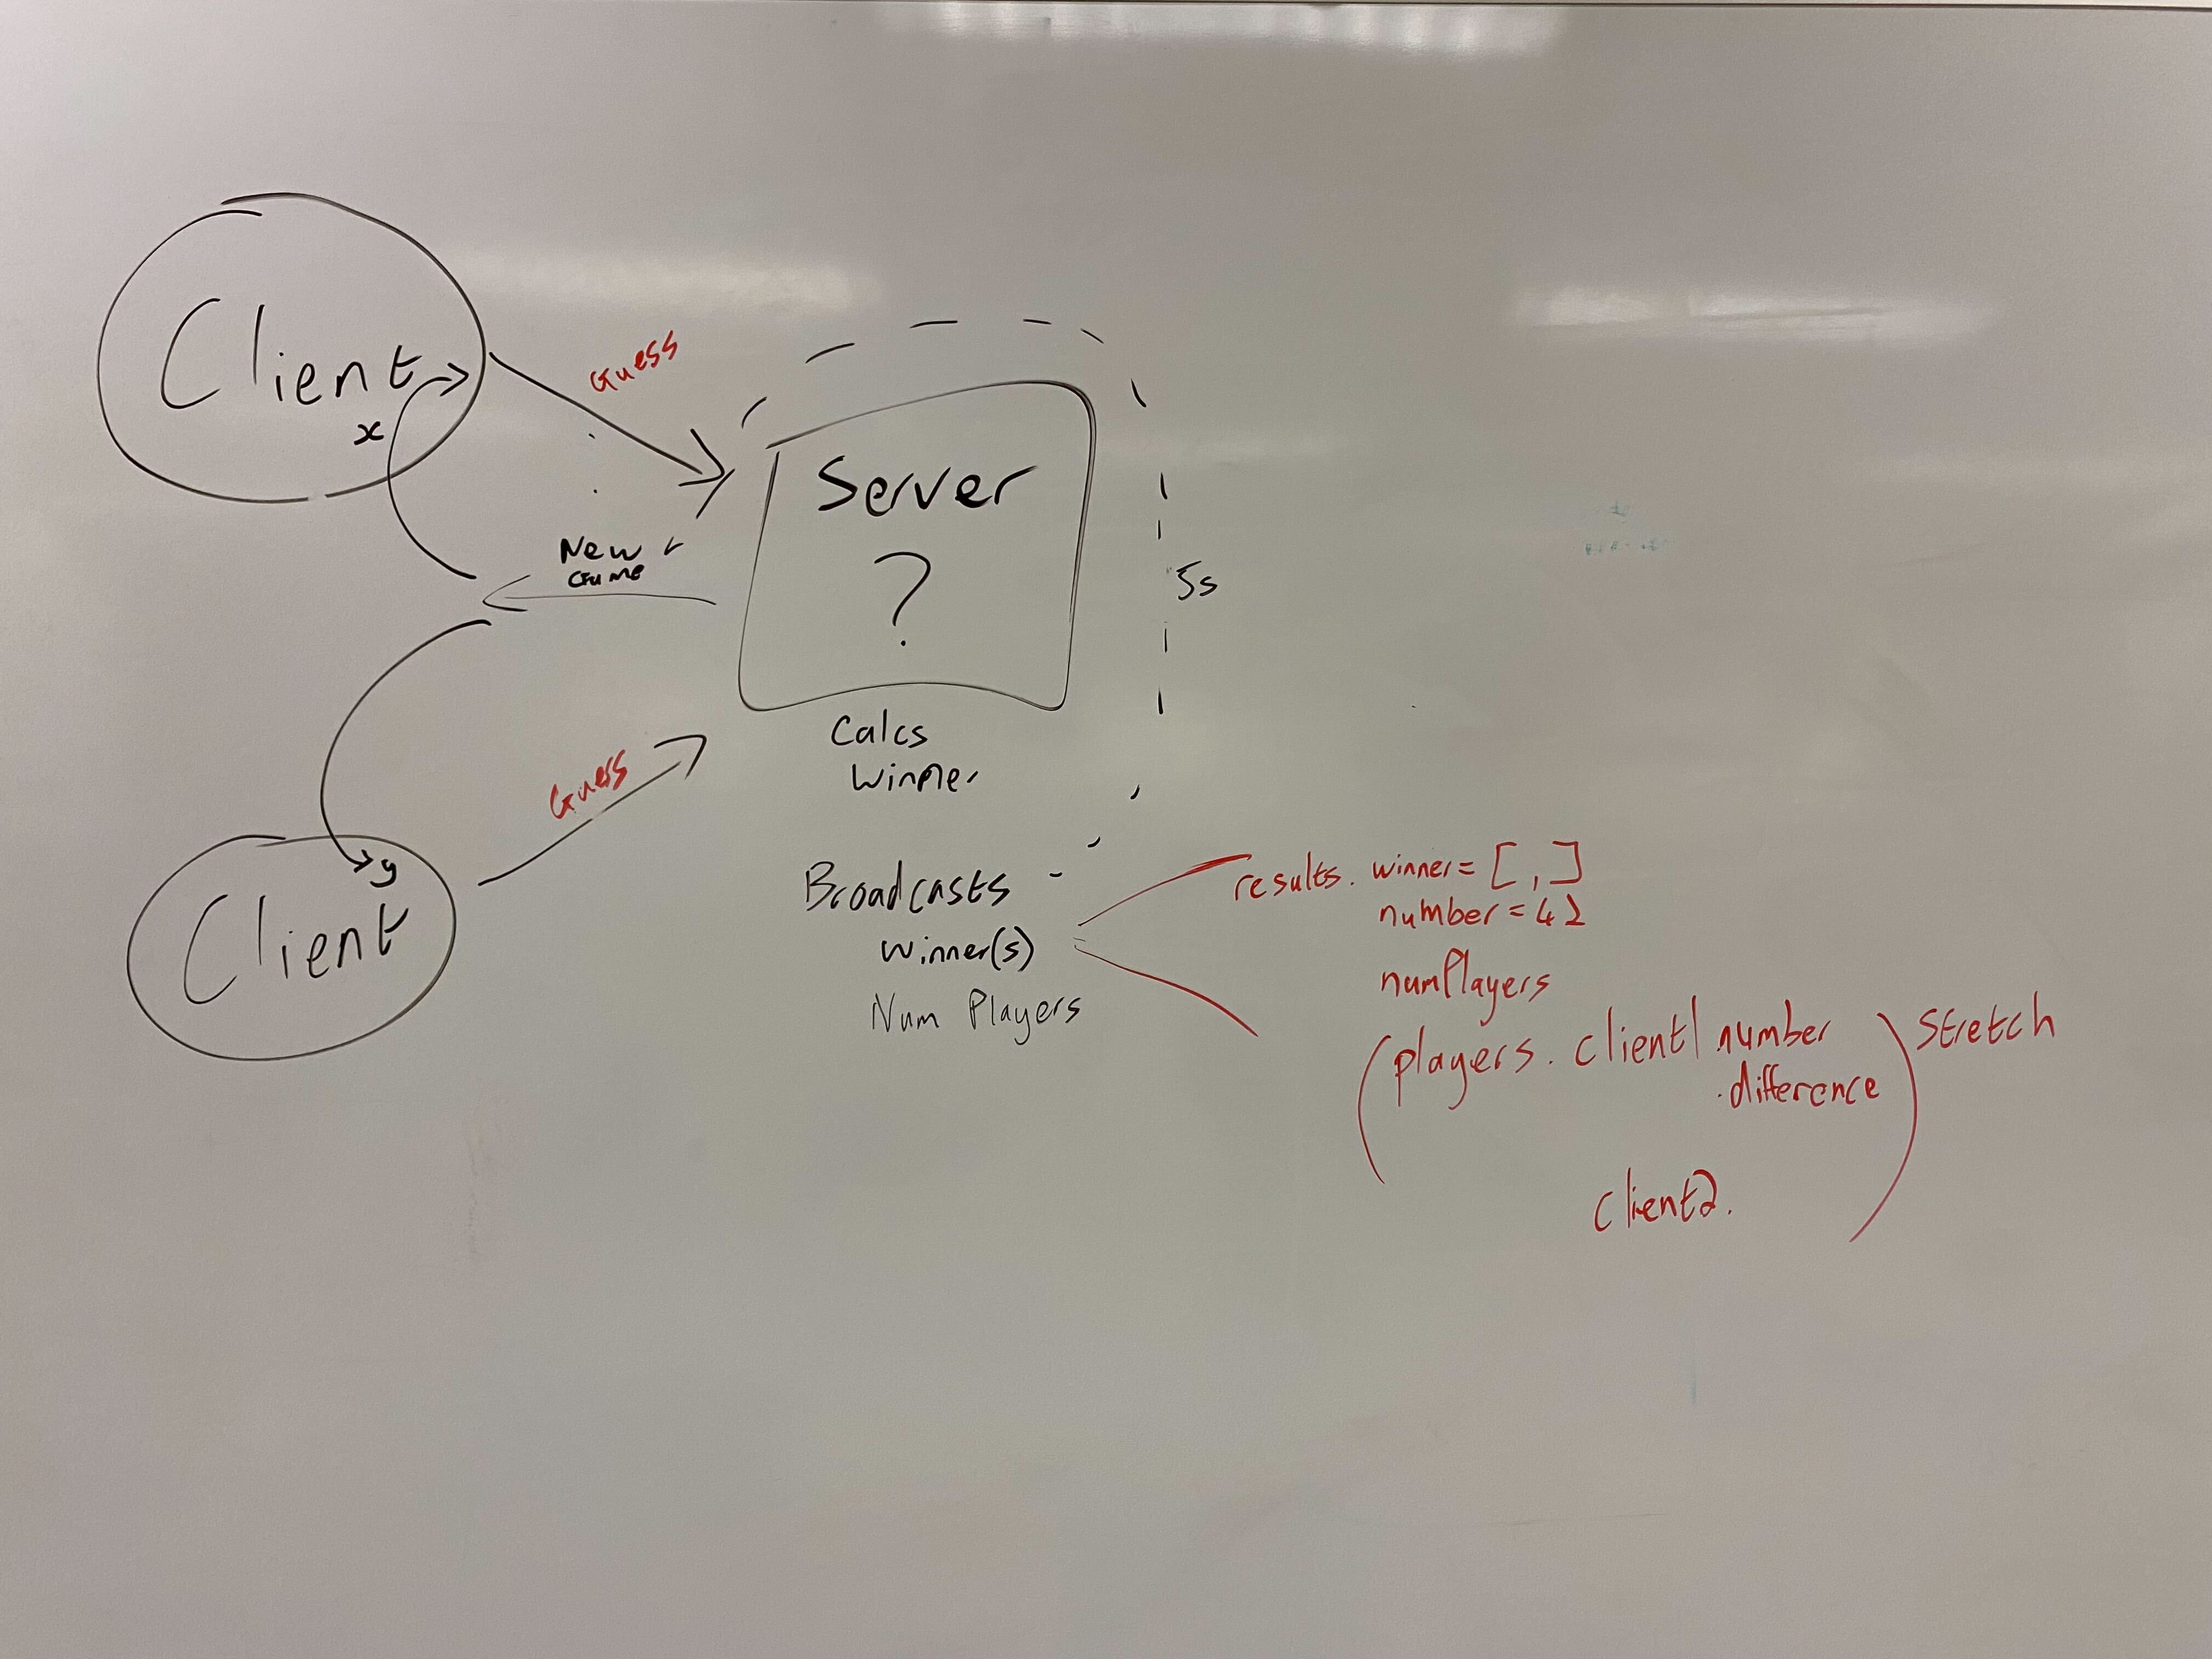 Client
x
Guess
Server
?
New
Game
5s
Calcs
Winner
Guess
y
Client
Broadcasts
Winner(s)
Num Players
results. winner = [ , ]
number = 42
numPlayers
(players. client1 number
.difference
client2.
) stretch